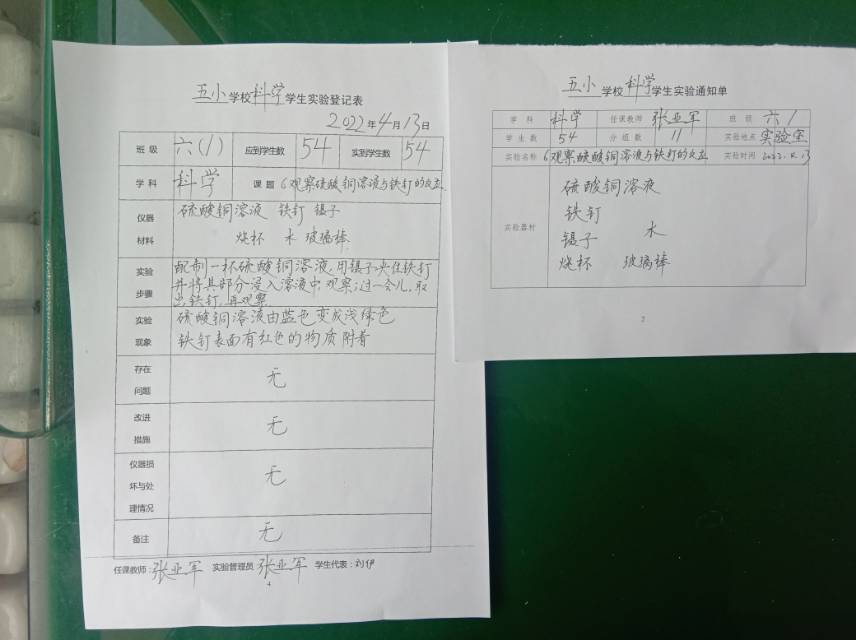 五小学校科学学生实验登记表
2022年4月13日
班级 六(1) 应到学生数 54 实到学生数 54
学科 科学 课题 6观察硫酸铜溶液与铁钉的反应
仪器材料 硫酸铜溶液 铁钉 镊子
烧杯 水 玻璃棒
实验步骤 配制一杯硫酸铜溶液,用镊子夹住铁钉
并将其部分浸入溶液中,观察;过一会儿,取
出铁钉,再观察
实验现象 硫酸铜溶液由蓝色变成浅绿色
铁钉表面有红色的物质附着
存在问题 无
改进措施 无
仪器损坏与处理情况 无
备注 无
任课教师:张亚军 实验管理员 张亚军 学生代表:刘伊
4
五小学校科学学生实验通知单
学科 科学 任课教师 张亚军 班级 六1
学生数 54 分组数 11 实验地点 实验室
实验名称 6观察硫酸铜溶液与铁钉的反应 实验时间 2022.4.13
实验器材 硫酸铜溶液
铁钉
镊子 水
烧杯 玻璃棒
2